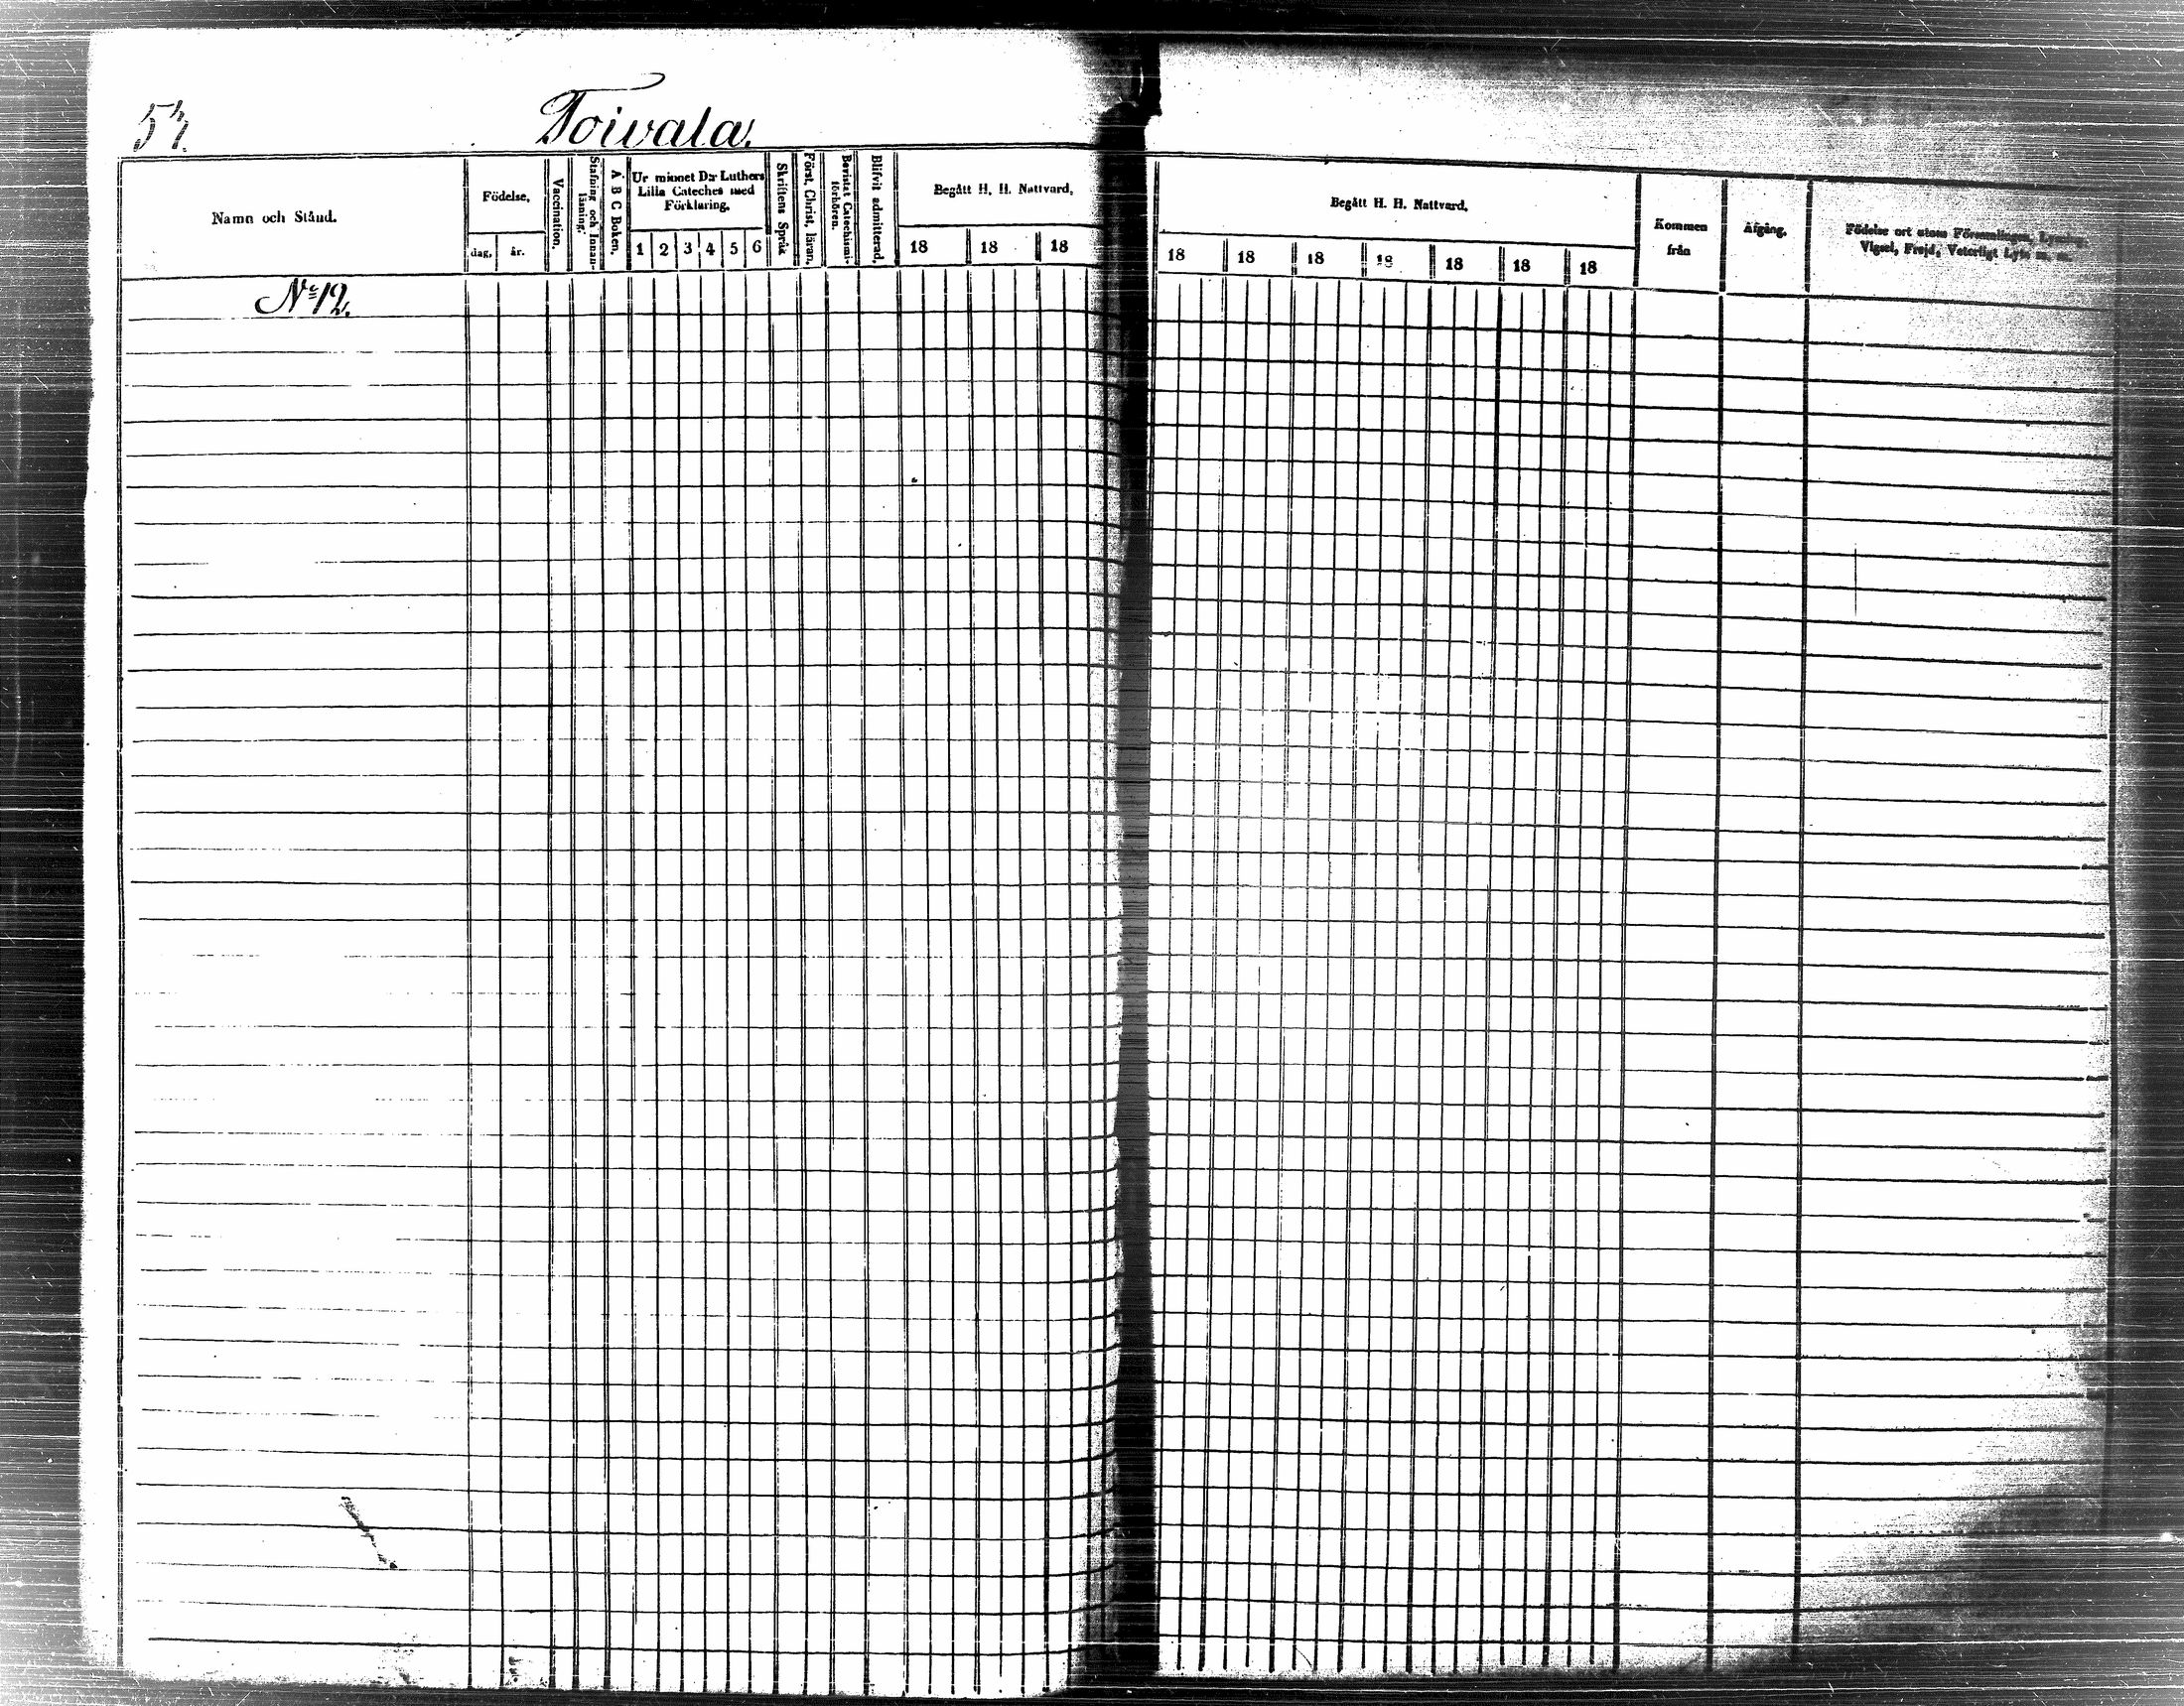 Toivala.
Namn och Stånd.
Födelse,
dag, år.
Vaccination,
Stafning och Innan-
läsning.
A B C Boken.
Ur minnet D:r Luthers
Lilla Cateches med
Förklaring.
1 2 3 4 5 6
Skriftens Språk
Först. Christ. läran.
Bevistat Catechismi-
förhören.
Blifvit admitterad.
Begått H. H. Nattvard,
18 18 18
Begått H. H. Nattvard,
18 18 18 18 18 18 18
Kommen
från
Afgång,
Födelse ort utom Församlingen, Lysning,
Vigsel, Frejd, Veterligt Lyte m. m.
No 12.